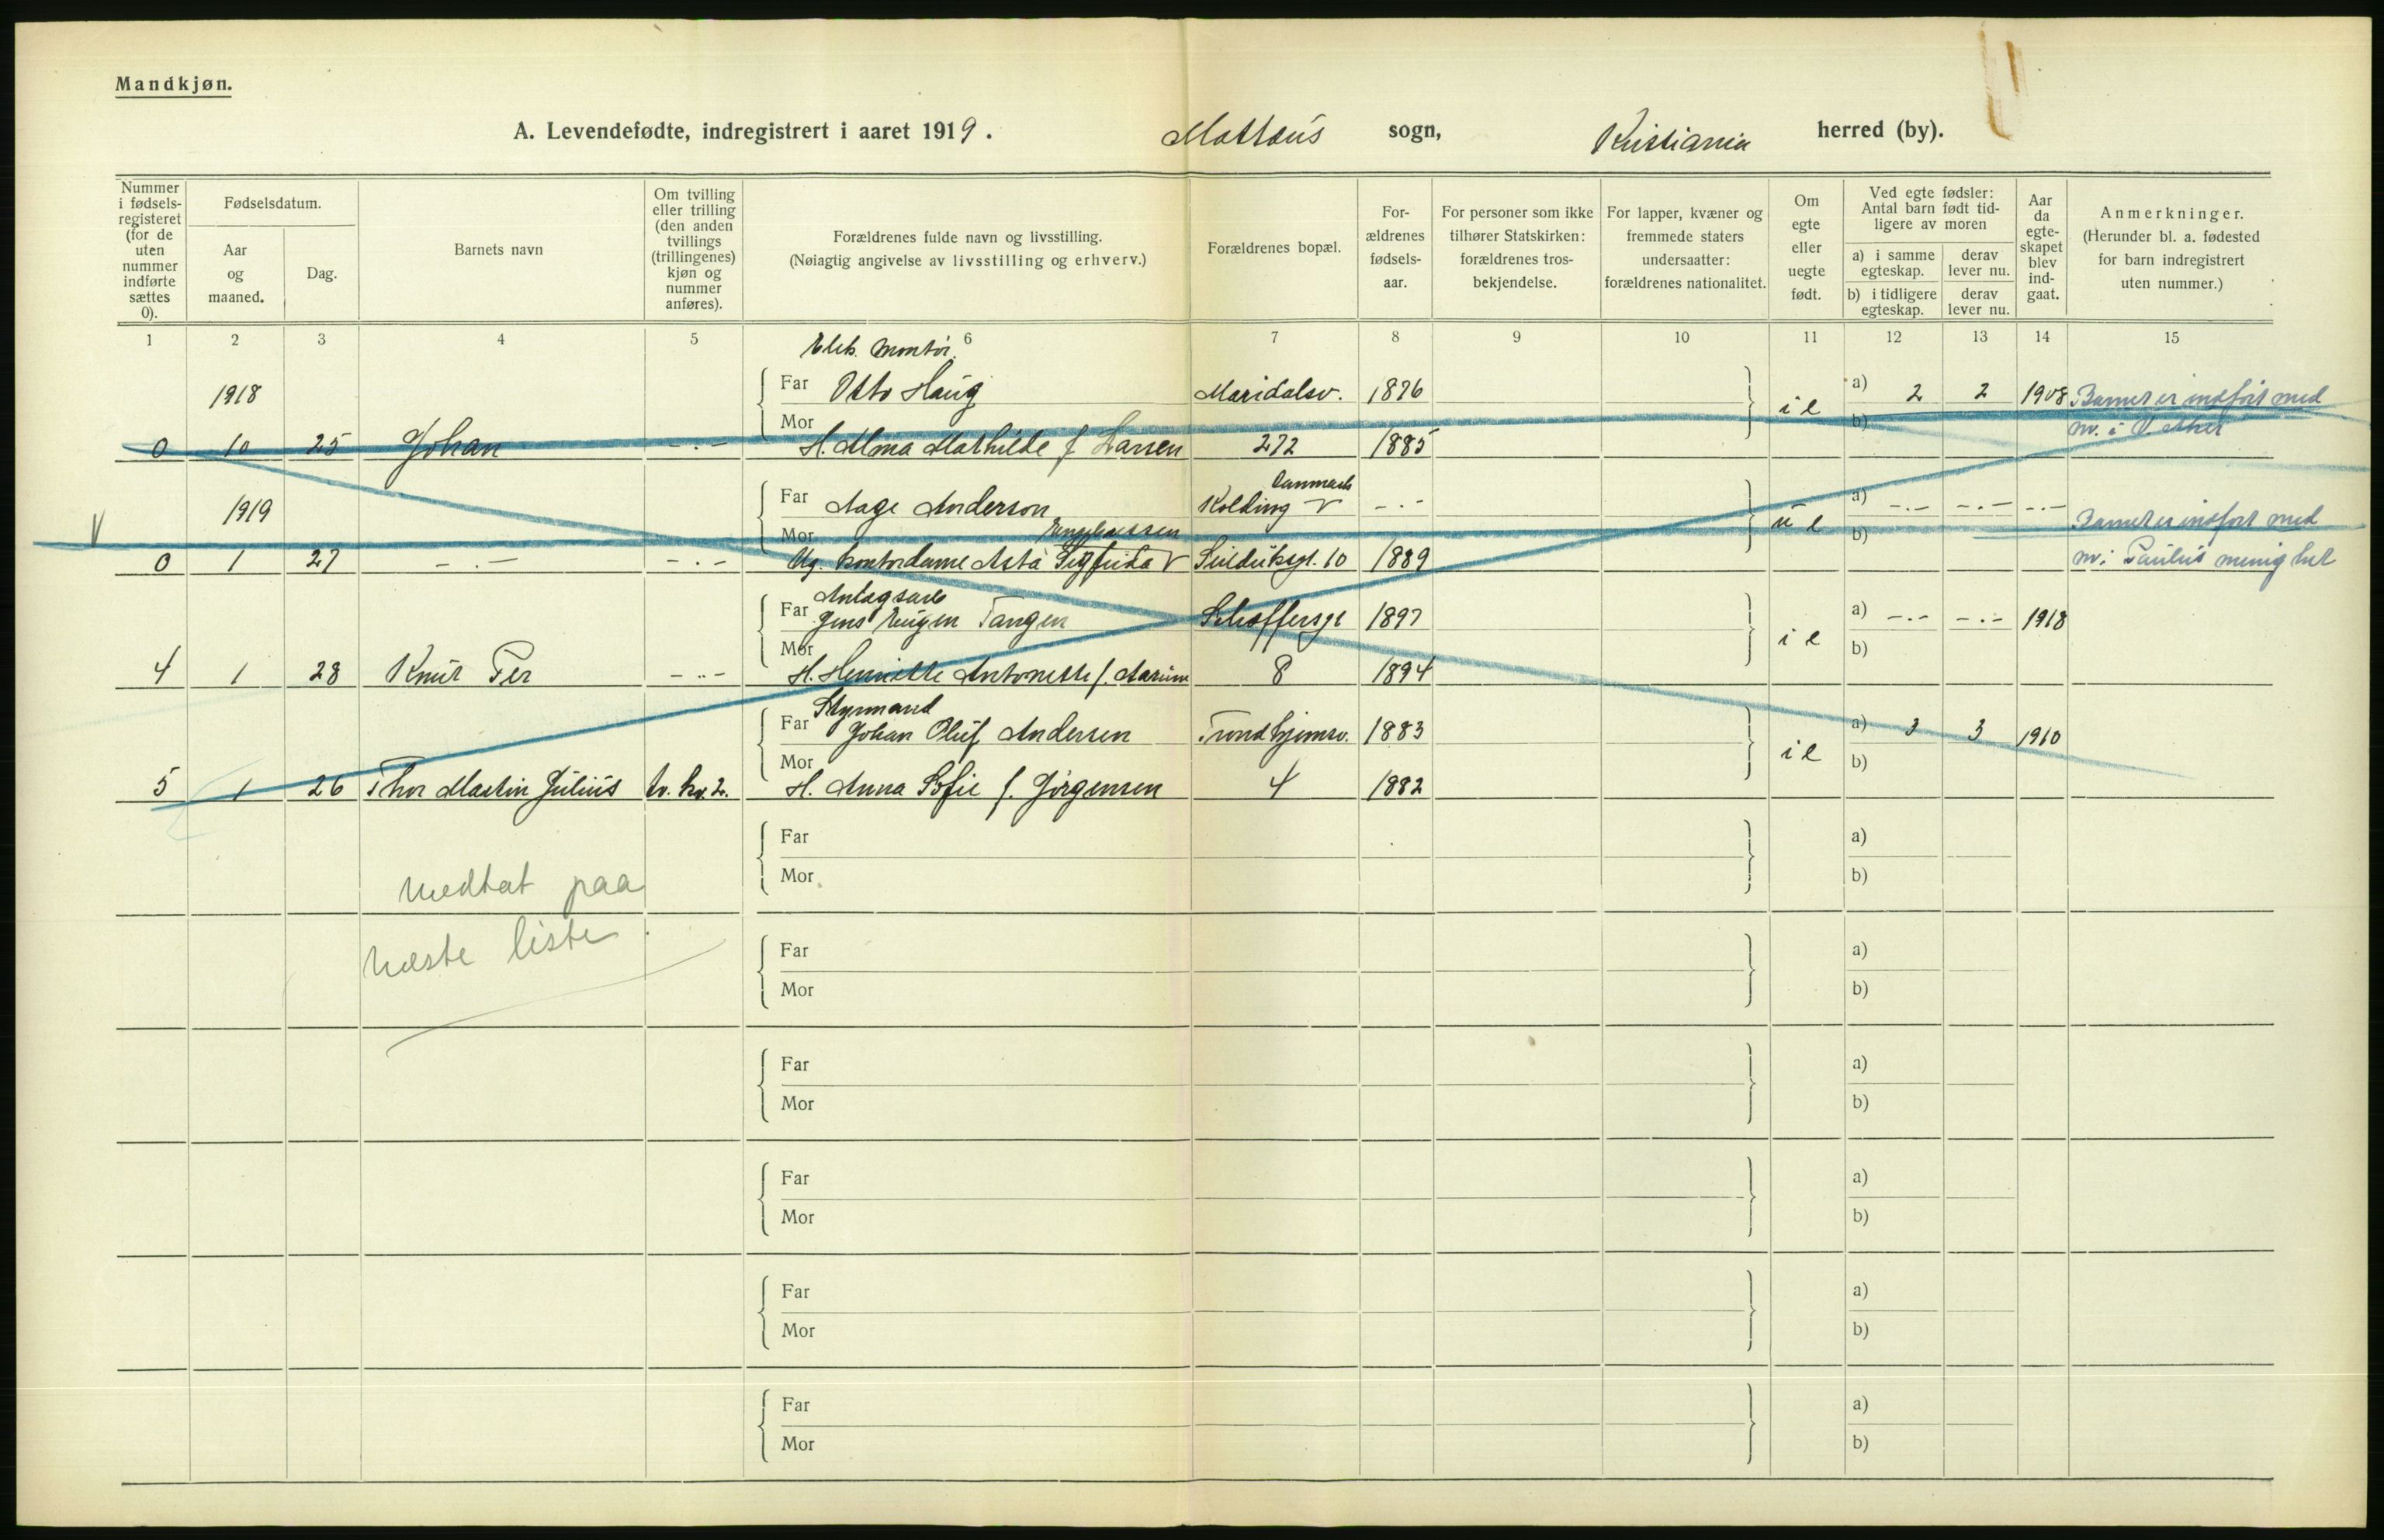 Mandkjøn.
A. Levendefødte, indregistrert i aaret 1919. Mattæus sogn, Kristiania herred (by).
Nummer i fødsels-registeret (for de uten nummer indførte sættes 0).
Fødselsdatum.
Aar og maaned.
Dag.
Barnets navn
Om tvilling eller trilling (den anden tvillings (trillingenes) kjøn og nummer anføres).
Forældrenes fulde navn og livsstilling.
(Nøiagtig angivelse av livsstilling og erhverv.)
Forældrenes bopæl.
For-ældrenes fødsels-aar.
For personer som ikke tilhører Statskirken: forældrenes tros-bekjendelse.
For lapper, kvæner og fremmede staters undersaatter: forældrenes nationalitet.
Om egte eller uegte født.
Ved egte fødsler: Antal barn født tid-ligere av moren
a) i samme egteskap.
derav lever nu.
b) i tidligere egteskap.
derav lever nu.
Aar da egte-skapet blev ind-gaat.
Anmerkninger.
(Herunder bl. a. fødested for barn indregistrert uten nummer.)
1 2 3 4 5 6 7 8 9 10 11 12 13 14 15
Elek. Montör.
1918 Far Otto Haug Maridalsv. 1876 i e a) 2 2 1908 Barnet er indført med
0 10 25 Johan -.- Mor H. Alma Mathilde f. Larsen 272 1885 b) nr. i V. Aker
Danmark
1919 Far Aage Anderson Kolding -.- u e a) -.- -.- -.- Barnet er indført med
V
0 1 27 -.- -.- Mor Ug. Kontordame Asta Sigfrida 10 1889 b) nr. i Paulus menighet
Anlagsarb
Far Jens Eugen Tangen Schøffersgt 1897 i e a) -.- -.- 1918
4 1 28 Knut Per -..- Mor H. Henriette Antonette f. 8 1894 b)
Styrmand
Far Johan Oluf Andersen Trondhjemsv. 1883 i e a) 3 3 1910
5 1 26 Thor Martin Julius tv. kv. 2. Mor H. Anna Sofie f. Jörgensen 4 1882 b)
Far a)
Mor b)
medtat paa
næste liste
Far a)
Mor b)
Far a)
Mor b)
Far a)
Mor b)
Far a)
Mor b)
Far a)
Mor b)